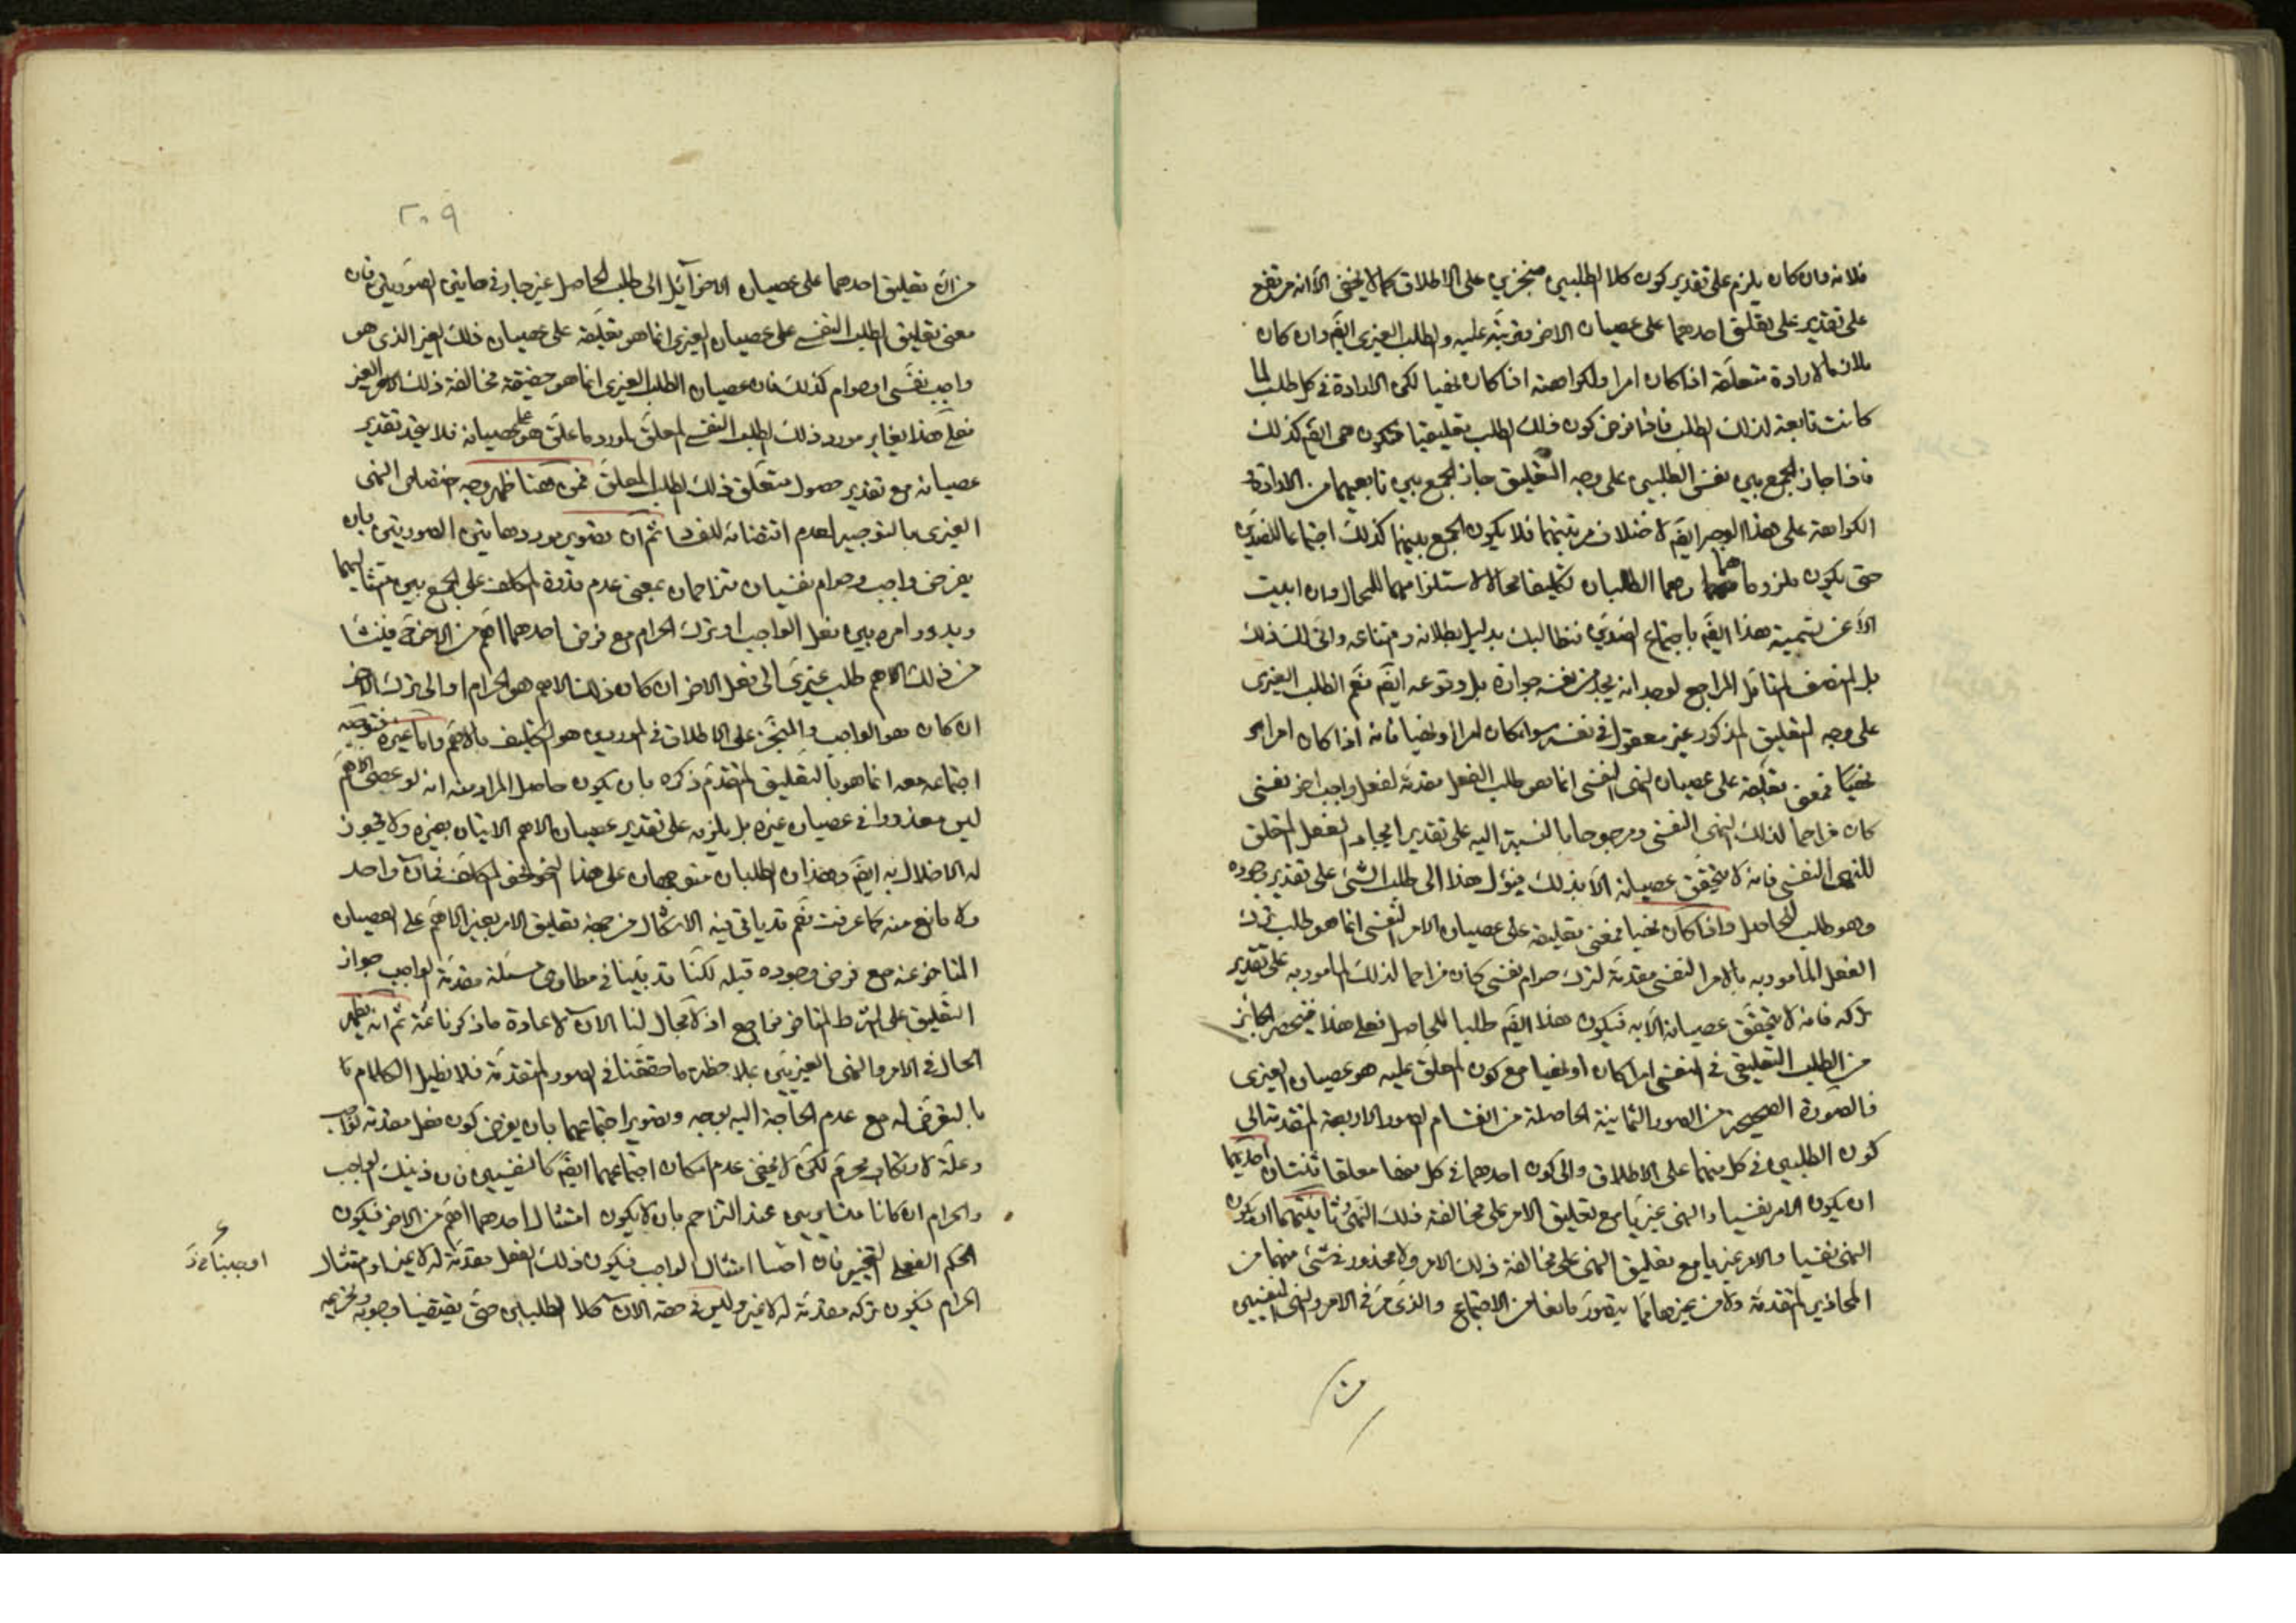 فلانه وان كان يلزم على تقدير كون كلا الطلبين منجزين على الاطلاق كما لا يخفى الا انه مرتفع
على تقدير على تعلق احدهما على عصيان الاخر مترتبة عليه والطلب الغيري ايضَ وان كان
ملازما لارادة متعلقه اذا كان امرا ولكراهته اذا كان نهيا لكن الارادة في كل طلب لما
كانت تابعة لذلك الطلب فاذا فرض كون ذلك الطلب تعليقيا فتكون هى ايضَ كذلك
فاذا جاز الجمع بين نفس الطلبين على وجه التعليق جاز الجمع بين تابعيهما من الارادة و
الكراهة على هذا الوجه ايضَ لاختلاف مرتبتهما فلا يكون الجمع بينهما كذلك اجتماعا للضدين
حتى يكون ملزوماهما وهما الطلبان تكليفا محالا لاستلزامهما للمحال وان ابيت
الا عن تسمية هذا ايضَ باجتماع الضدين فنطالبك بدليل بطلانه وامتناعه وانى لك ذلك
بل المنصف المتأمل المراجع لوجدانه يجد من نفسه جوازه بل وقوعه ايضَ نعم الطلب الغيري
على وجه التعليق المذكور غير معقول في نفسه سواء كان امرا او نهيا فانه اذا كان امرا لا
نهيا فمعنى تعليقه على عصيان النهى النفسي انما هو طلب الفعل مقدمة لفعل واجب اخر نفسي
كان مزاحما لذلك النهى النفسي ومرجوحا بالنسبة اليه على تقدير ايجاد الفعل المتعلق
للنهى النفسي فانه لا يتحقق عصيانه الا بذلك فيؤل هذا الى طلب الشئ على تقدير وجوده
وهو طلب الحاصل واذا كان نهيا فمعنى تعليقه على عصيان الامر النفسي انما هو طلب ترك
الفعل المامور به بالامر النفسي مقدمة لترك حرام نفسي كان مزاحما لذلك المامور به على تقدير
تركه فانه لا يتحقق عصيانه الا به فيكون هذا ايضَ طلبا للحاصل فعلى هذا فينحصر الجائز
من الطلب التعليقي في النفسي امرا كان او نهيا مع كون المعلق عليه هو عصيان الغيري
فالصورة الصحيحة من الصور الثمانية الحاصلة من انقسام الصور الاربعة المتقدمة الى
كون الطلبين في كل منهما على الاطلاق والى كون احدهما في كل منها معلقا ثنتان احديهما
ان يكون الامر نفسيا والنهى غيريا مع تعليق الامر على مخالفة ذلك النهى وثانيتهما ان يكون
النهى نفسيا والامر غيريا مع تعليق النهى على مخالفة ذلك الامر ولا محذور في شئ منهما من
المحاذير المتقدمة ولا من غيرها مما يتصور مانعا من الاجتماع والذى مر في الامر والنهى النفسيين
من
٢٠٩
من ان تعليق احدهما على عصيان الاخر آئل الى طلب الحاصل غير جار في هاتين الصورتين فان
معنى تعليق الطلب النفسي على عصيان الغيري انما هو تعليقه على عصيان ذلك الغير الذى هو
واجب نفسي او حرام كذلك فان عصيان الطلب الغيري انما هو حقيقة مخالفة ذلك الامر الغير
فعلى هذا يغاير مورد ذلك الطلب النفسي المعلق لمورد ما علق هو على عصيانه فلا يتحد تقدير
عصيانه مع تقدير حصول متعلق ذلك الطلب المعلق فمن ههنا ظهر وجه اختصاص النهى
الغيري بالتوجيه لعدم اقتضائه للفساد ثم ان تصوير مورد هاتين الصورتين بان
يفرض واجب وحرام نفسيان تزاحمان بمعنى عدم قدرة المكلف على الجمع بين امتثاليهما
ويدور امره بين فعل الواجب او ترك الحرام مع فرض احدهما اهم من الاخر فح فينشا
من ذلك الاهم طلب غيرى الى فعل الاخر ان كان ذلك الاهم هو الحرام او الى ترك الاخر
ان كان هو الواجب والمنجز على الاطلاق في الموردين هو التكليف بالاهم واما غيره فتوجيه
اجتماعه معه انما هو بالتعليق المتقدم ذكره بان يكون حاصل المراد منه انه لو عصى الاهم
ليس معذورا في عصيان غيره بل يلزمه على تقدير عصيان الاهم الاتيان بغيره ولا يجوز
له الاخلال به ايضَ وهذان الطلبان متوجهان على هذا النحو نحو المكلف في آن واحد
ولا مانع منه كما عرفت نعم قد ياتي فيه الاشكال من جهة تعليق الامر بغير الاهم على العصيان
المتاخر عنه مع فرض وجوده قبله لكنا قد بينا في مطاوى مسئلة مقدمة الواجب جواز
التعليق على الشرط المتاخر فراجع اذ لا مجال لنا الان لاعادة ما ذكرنا ثمة ثم انه يظهر
الحال في الامر والنهى الغيريين بملاحظة ما حققنا في الصور المتقدمة فلا نطيل الكلام
بالتعرض له مع عدم الحاجة اليه بوجه وتصوير اجتماعهما بان يفرض كون فعل مقدمة لواجب
وعلة لارتكاب محرم لكن لا يخفى عدم امكان اجتماعهما ايضَ كالنفسيين فان ذينك الواجب
والحرام ان كانا متساويين عند التزاحم بان لا يكون امتثال احدهما اهم من الاخر فيكون
الحكم الفعلى التخيير فان اختار امتثال الواجب فيكون ذلك الفعل مقدمة له لا غير او امتثال
الحرام فيكون تركه مقدمة له لا غير وليس في حقه الان كلا الطلبين حتى يقتضيا وجوبه وتحريمه